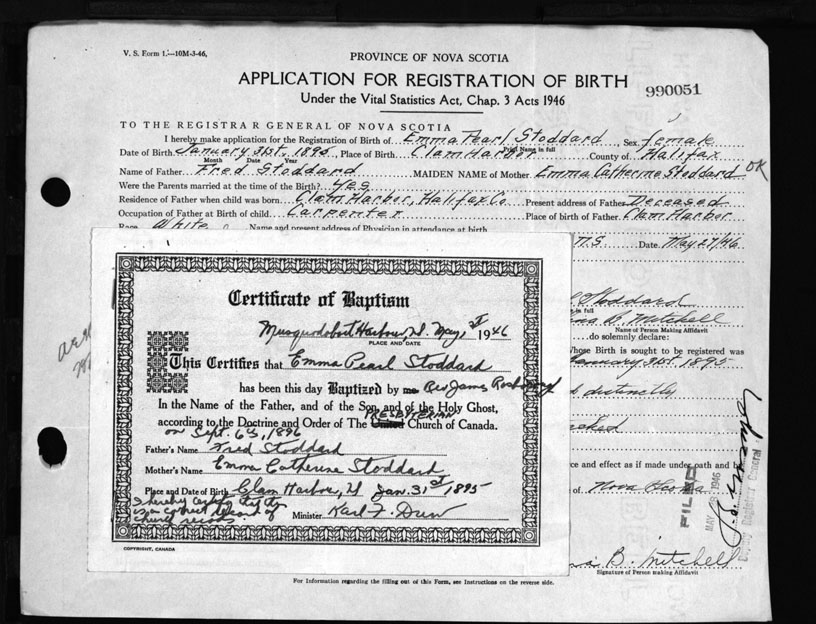 V. S. Form 1.—10M-3-46.
PROVINCE OF NOVA SCOTIA
APPLICATION FOR REGISTRATION OF BIRTH
990051
Under the Vital Statistics Act, Chap. 3 Acts 1946
TO THE REGISTRAR GENERAL OF NOVA SCOTIA
I hereby make application for the Registration of Birth of Emma Pearl Stoddard, Sex female
Name in full
Date of Birth January 31st, 1895, Place of Birth Clam Harbor County of Halifax
Month Date Year
OK
Name of Father Fred Stoddard MAIDEN NAME of Mother Emma Catherine Stoddard
Were the Parents married at the time of the Birth? Yes
Residence of Father when child was born Clam Harbor, Halifax Co Present address of Father Deceased
Occupation of Father at Birth of child Carpenter Place of birth of Father Clam Harbor
Race White Name and present address of Physician in attendance at birth
N.S. Date May 27/46
Stoddard
in full
B. Mitchell
Name of Person Making Affidavit
do solemnly declare:
Whose Birth is sought to be registered was
January 31st. 1895
distinctly
ce and effect as if made under oath and
of Nova Scotia
FILED
MAY 1946
Deputy Registrar General
B. Mitchell
Signature of Person making Affidavit
Certificate of Baptism
Musquodoboit Harbour, N.S. May, 1st 1946
PLACE AND DATE
This Certifies that Emma Pearl Stoddard
has been this day Baptized by me Rev James Rosborough
In the Name of the Father, and of the Son, and of the Holy Ghost,
PRESBYTERIAN
according to the Doctrine and Order of The United Church of Canada.
on Sept. 6th, 1896
Father's Name Fred Stoddard
Mother's Name Emma Catherine Stoddard
Place and Date of Birth Clam Harbour, N.S. Jan. 31st 1895
I hereby certify that this
is a correct record of
church records
Minister Karl F. Drew
COPYRIGHT, CANADA
For Information regarding the filling out of this Form, see Instructions on the reverse side.